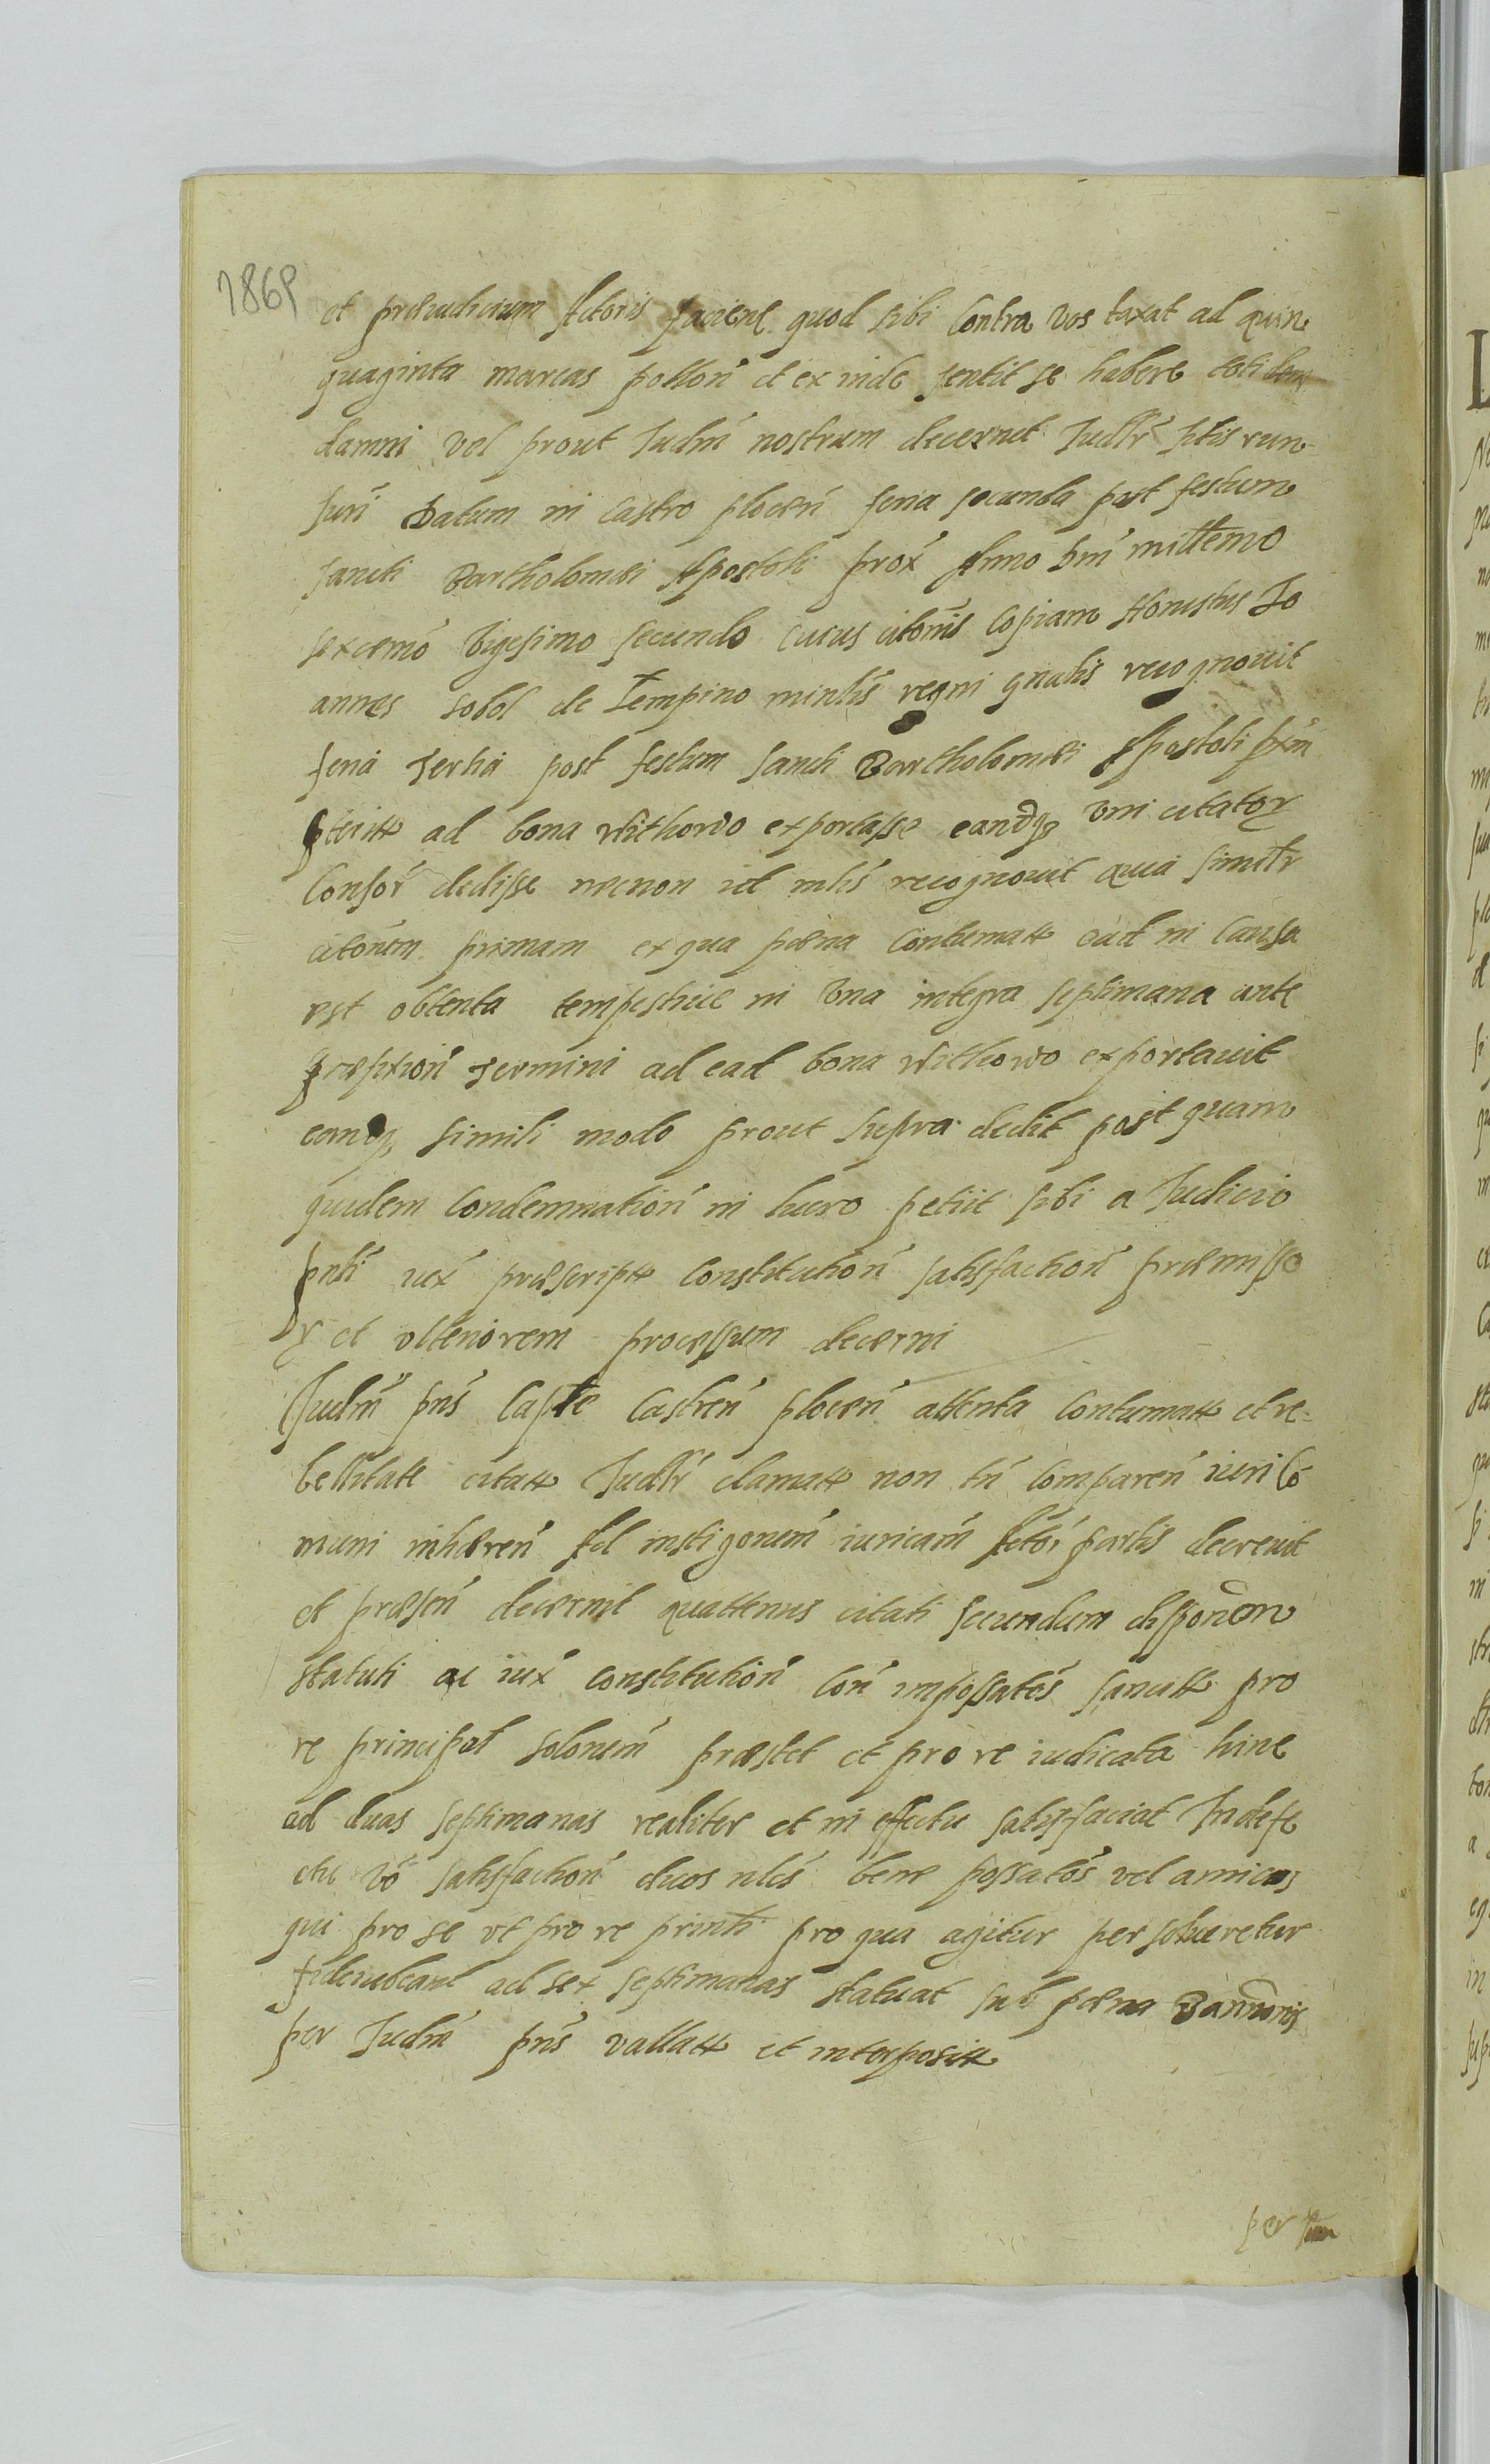 1869
et præiudicium Actoris facien quod sibi Contra vos taxat ad quin
quaginta marcas pollon et ex inde sentit se habere toti dem
damni vel prout Iudm nostrum decernet Iudlr sitis run
suri Datum in Castro plocen feria secunda post festum
sancti Bartholomei Apostoli prox Anno Dni millemo
sexcemo Vigesimo secundo cuius citonis Copiam Honestus Jo
annes Sobol de Sempino minlis regni gnalis recognouit
feria Tertia post festum Sancti Bartholomei Apostoli
ad bona Withowo exportasse eandq Vni citator
Consor dedisse necnon id mlis recognouit quia similr
citonem primam ex qua pæna Contumatt ead in Causa
est obtenta tempestiue in Vna integra septimana ante
Termini ad ead bona Withowo exportauit
eandq simili modo prout supra dedit post quam
quidem Condemnation in lucro petiit sibi a Iudicio
pnti iux præscript Constitution satisfaction præmisso
r et vlteriorem processum decerni
Iudm pns Capte Castren plocen attenta Contumatt et re=
bellitate citatt Iudlr clamatt non tn Comparen iuri Co
muni inhæren Ad instigonem iuricam Actor partis decreuit
et præsen decernit quattenus citati secundum disponem
Statuti ac iux constitution Con impossatos sancitt pro
re principal solonem præstet et pro re iudicata hinc
ad duas septimanas realiter et in effectu satisfaciat In defe
ctu vo satisfaction duos nles bene possatos vel amicos
qui pro se vt pro re prinli pro qua agitur persolueretur
fideiubeant ad sex septimanas statuat sub pæna Bannonis
per Iudm pns vallatt et interpositt
per